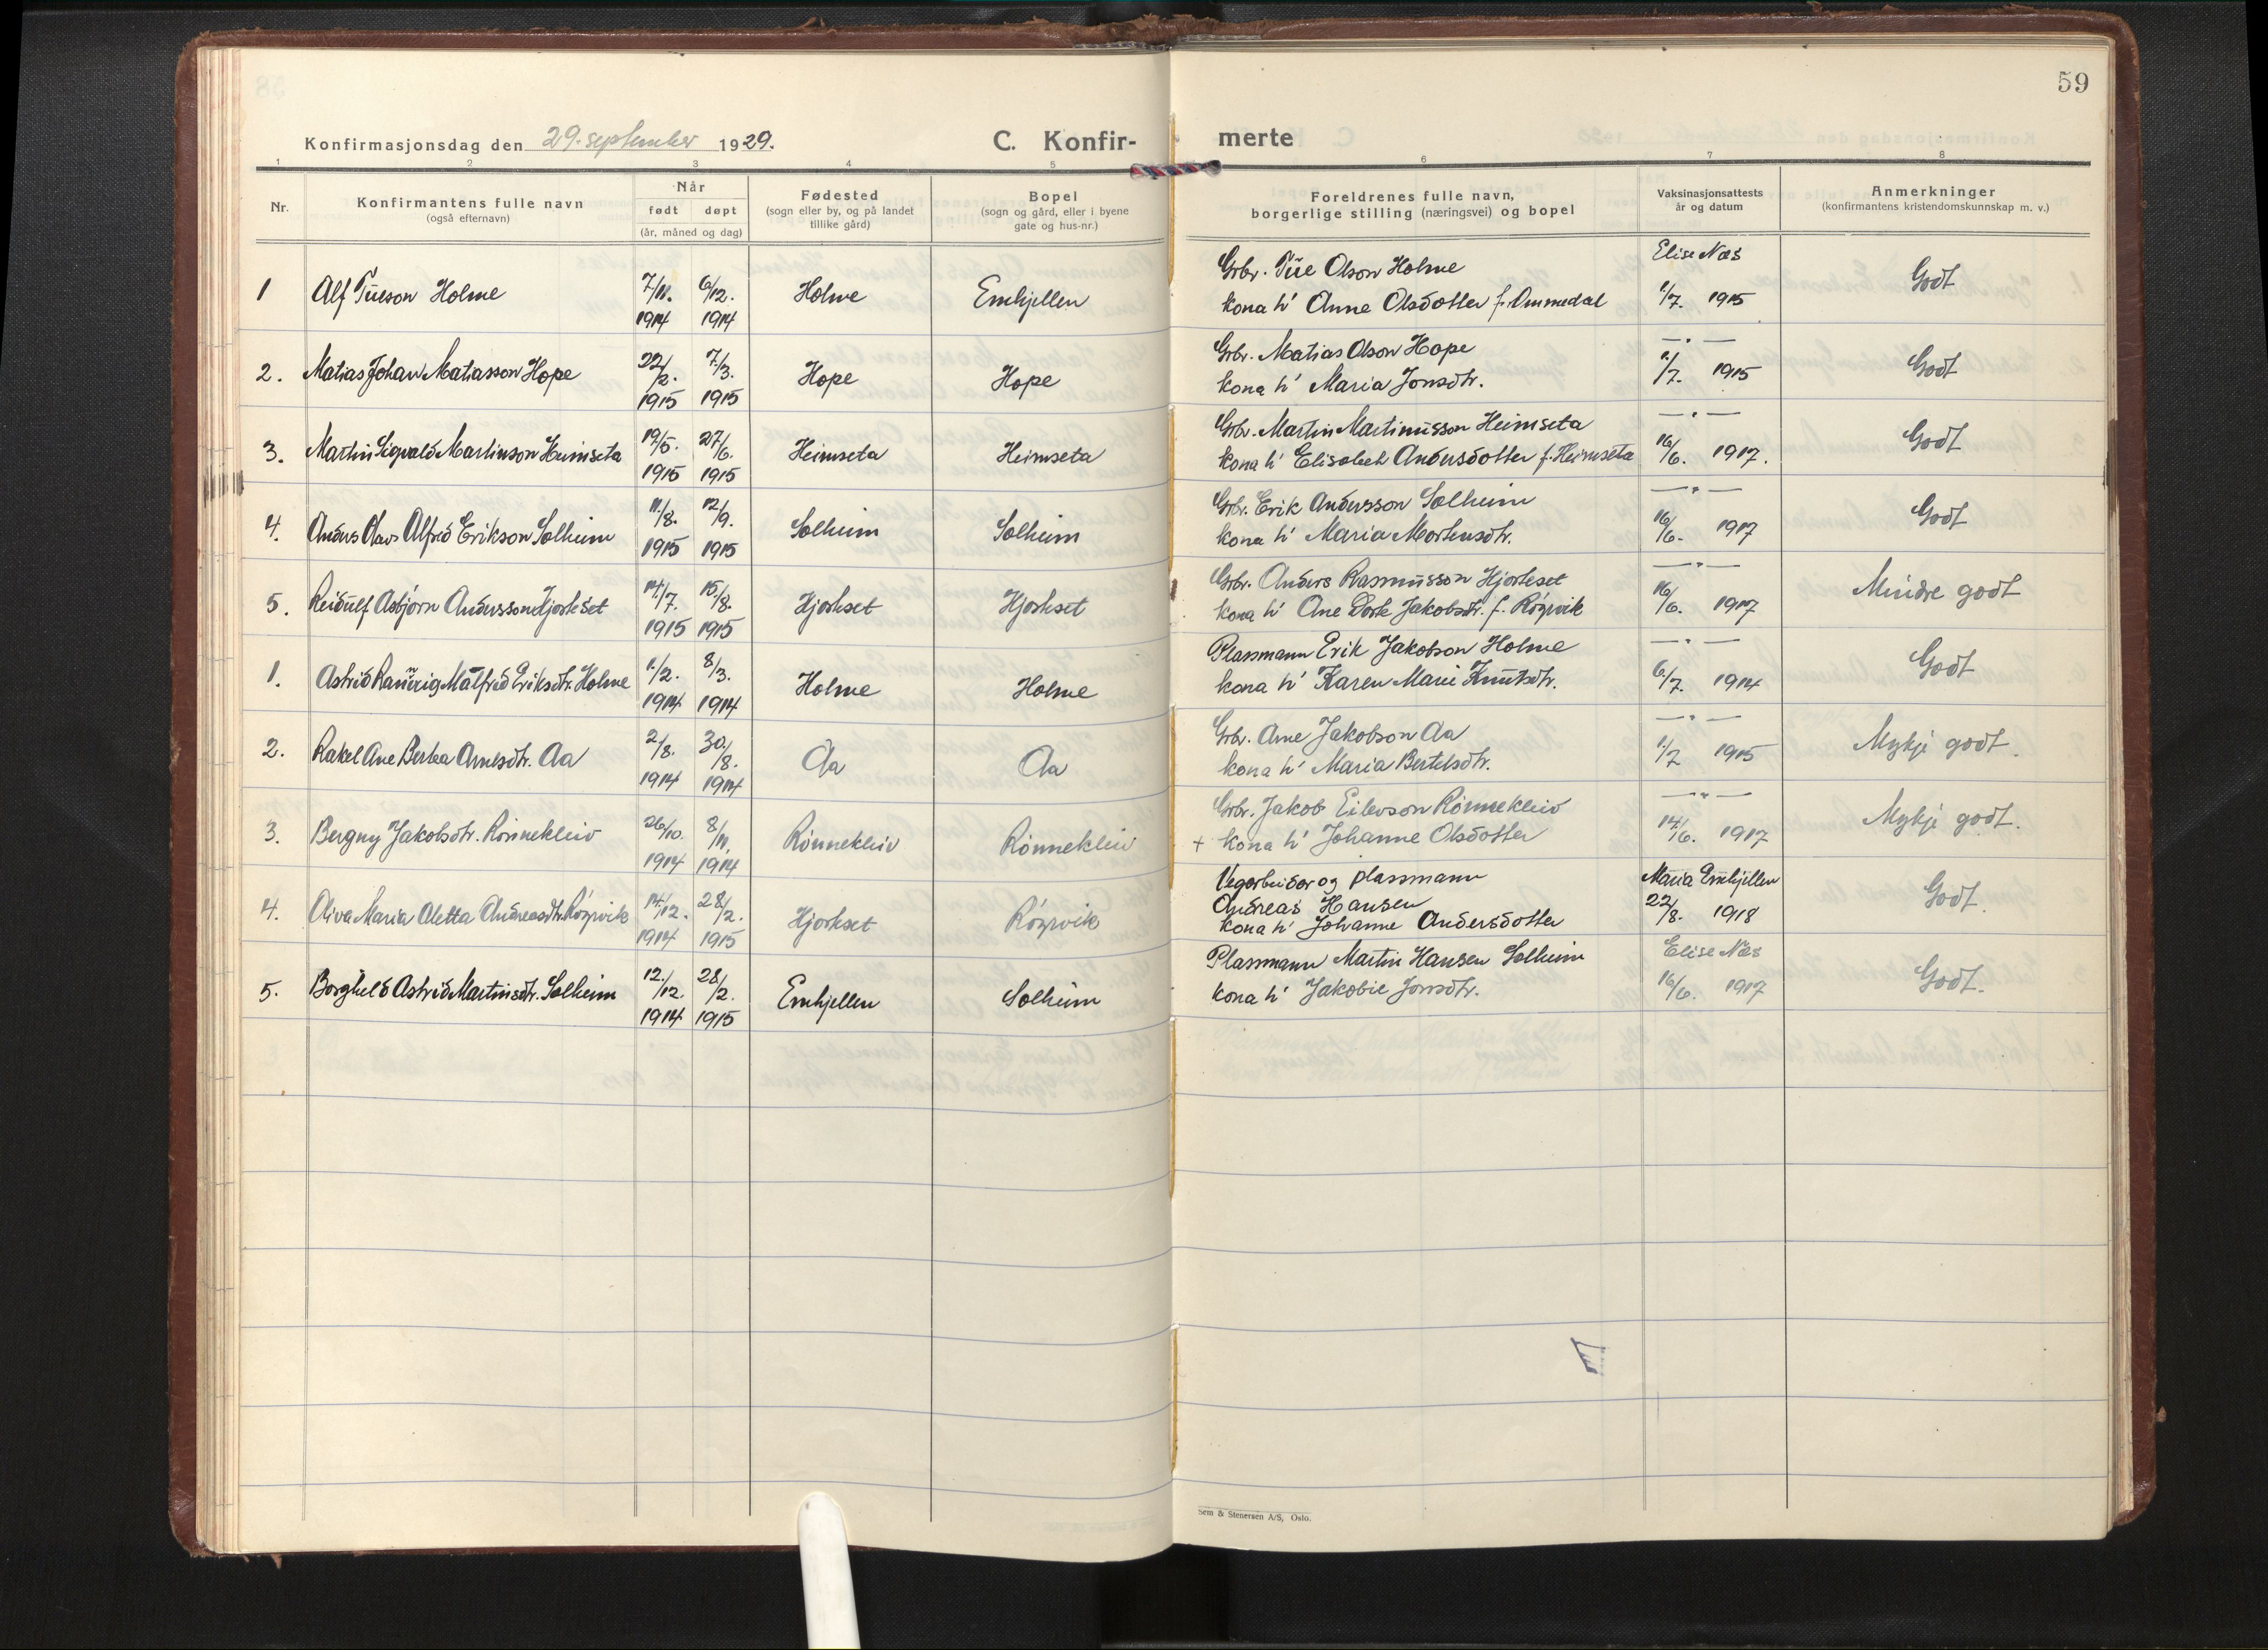 59
Konfirmasjonsdag den 29. september 1929.
C. Konfir-
merte
1 2 3 4 5 6 7 8
Nr.
Konfirmantens fulle navn
(også efternavn)
Når
født døpt
(år, måned og dag)
Fødested
(sogn eller by, og på landet
tillike gård)
Bopel
(sogn og gård, eller i byene
gate og hus-nr.)
Foreldrenes fulle navn,
borgerlige stilling (næringsvei) og bopel
Vaksinasjonsattests
år og datum
Anmerkninger
(konfirmantens kristendomskunnskap m. v.)
Grbr. Tüe Olson Holme Elise Næs
1 Alf Tüeson Holme 7/11. 6/12. Holme Emhjellen Godt
1914 1914 kona h' Anne Olsdotter f. Ommedal 1/7. 1915
Grbr. Matias Olson Hope — " —
2. Matias Johan Matiasson Hope 22/2. 7/3. Hope Hope Godt
1915 1915 kona h' Maria Jonsdtr. 1/7. 1915
Grbr. Martin Martinusson Heimseta — " —
3. Martin Sigvald Martinson Heimseta 19/5. 27/6. Heimseta Heimseta Godt
1915 1915 kona h' Elisabeth Andersdotter f. Heimseta 16/6. 1917.
Grbr. Erik Andersson Solheim — " —
4. Anders Olav Alfred Erikson Solheim 11/8. 12/9. Solheim Solheim Godt
1915 1915 kona h' Maria Mortensdtr. 16/6. 1917
Grbr. Anders Rasmusson Hjorteset — " —
5. Reidulf Asbjørn Andersson Hjorteset 14/7. 15/8. Hjorteset Hjorteset Mindre godt
1915 1915 kona h' Ane Dorte Jakobsdtr. f. Röyrvik 16/6. 1917
Plassmann Erik Jakobson Holme — " —
1. Astrid Rannveig Målfred Eriksdtr. Holme 1/2. 8/3. Holme Holme Godt
1914 1914 kona h' Karen Marie Knutsdtr. 6/7. 1914
Grbr. Arne Jakobson Aa — " —
2. Rakel Ane Bertea Arnesdtr. Aa 2/8. 30/8. Aa Aa Mykje godt.
1914 1914 kona h' Maria Bertelsdtr. 1/7 1915
Grbr. Jakob Eilevson Rönnekleiv — " —
3. Bergny Jakobsdtr. Rönnekleiv 26/10. 8/11. Rönnekleiv Rönnekleiv Mykje godt.
1914 1914 + kona h' Johanne Olsdotter 14/6. 1917
Vegarbeidar og plassmann Maria Emhjellen
4. Oliva Maria Aletta Andreasdtr. Röyrvik 14/12. 28/2. Hjorteset Röyrvik Andreas Hansen 22/8. 1918 Godt.
1914 1915 kona h' Johanne Andersdotter
Plassmann Martin Hansen Solheim Elise Næs
5. Borghild Astrid Martinsdtr. Solheim 12/12. 28/2. Emhjellen Solheim Godt.
1914 1915 kona h' Jakobie Jonsdtr. 16/6. 1917
Sem & Stenersen A/S, Oslo.